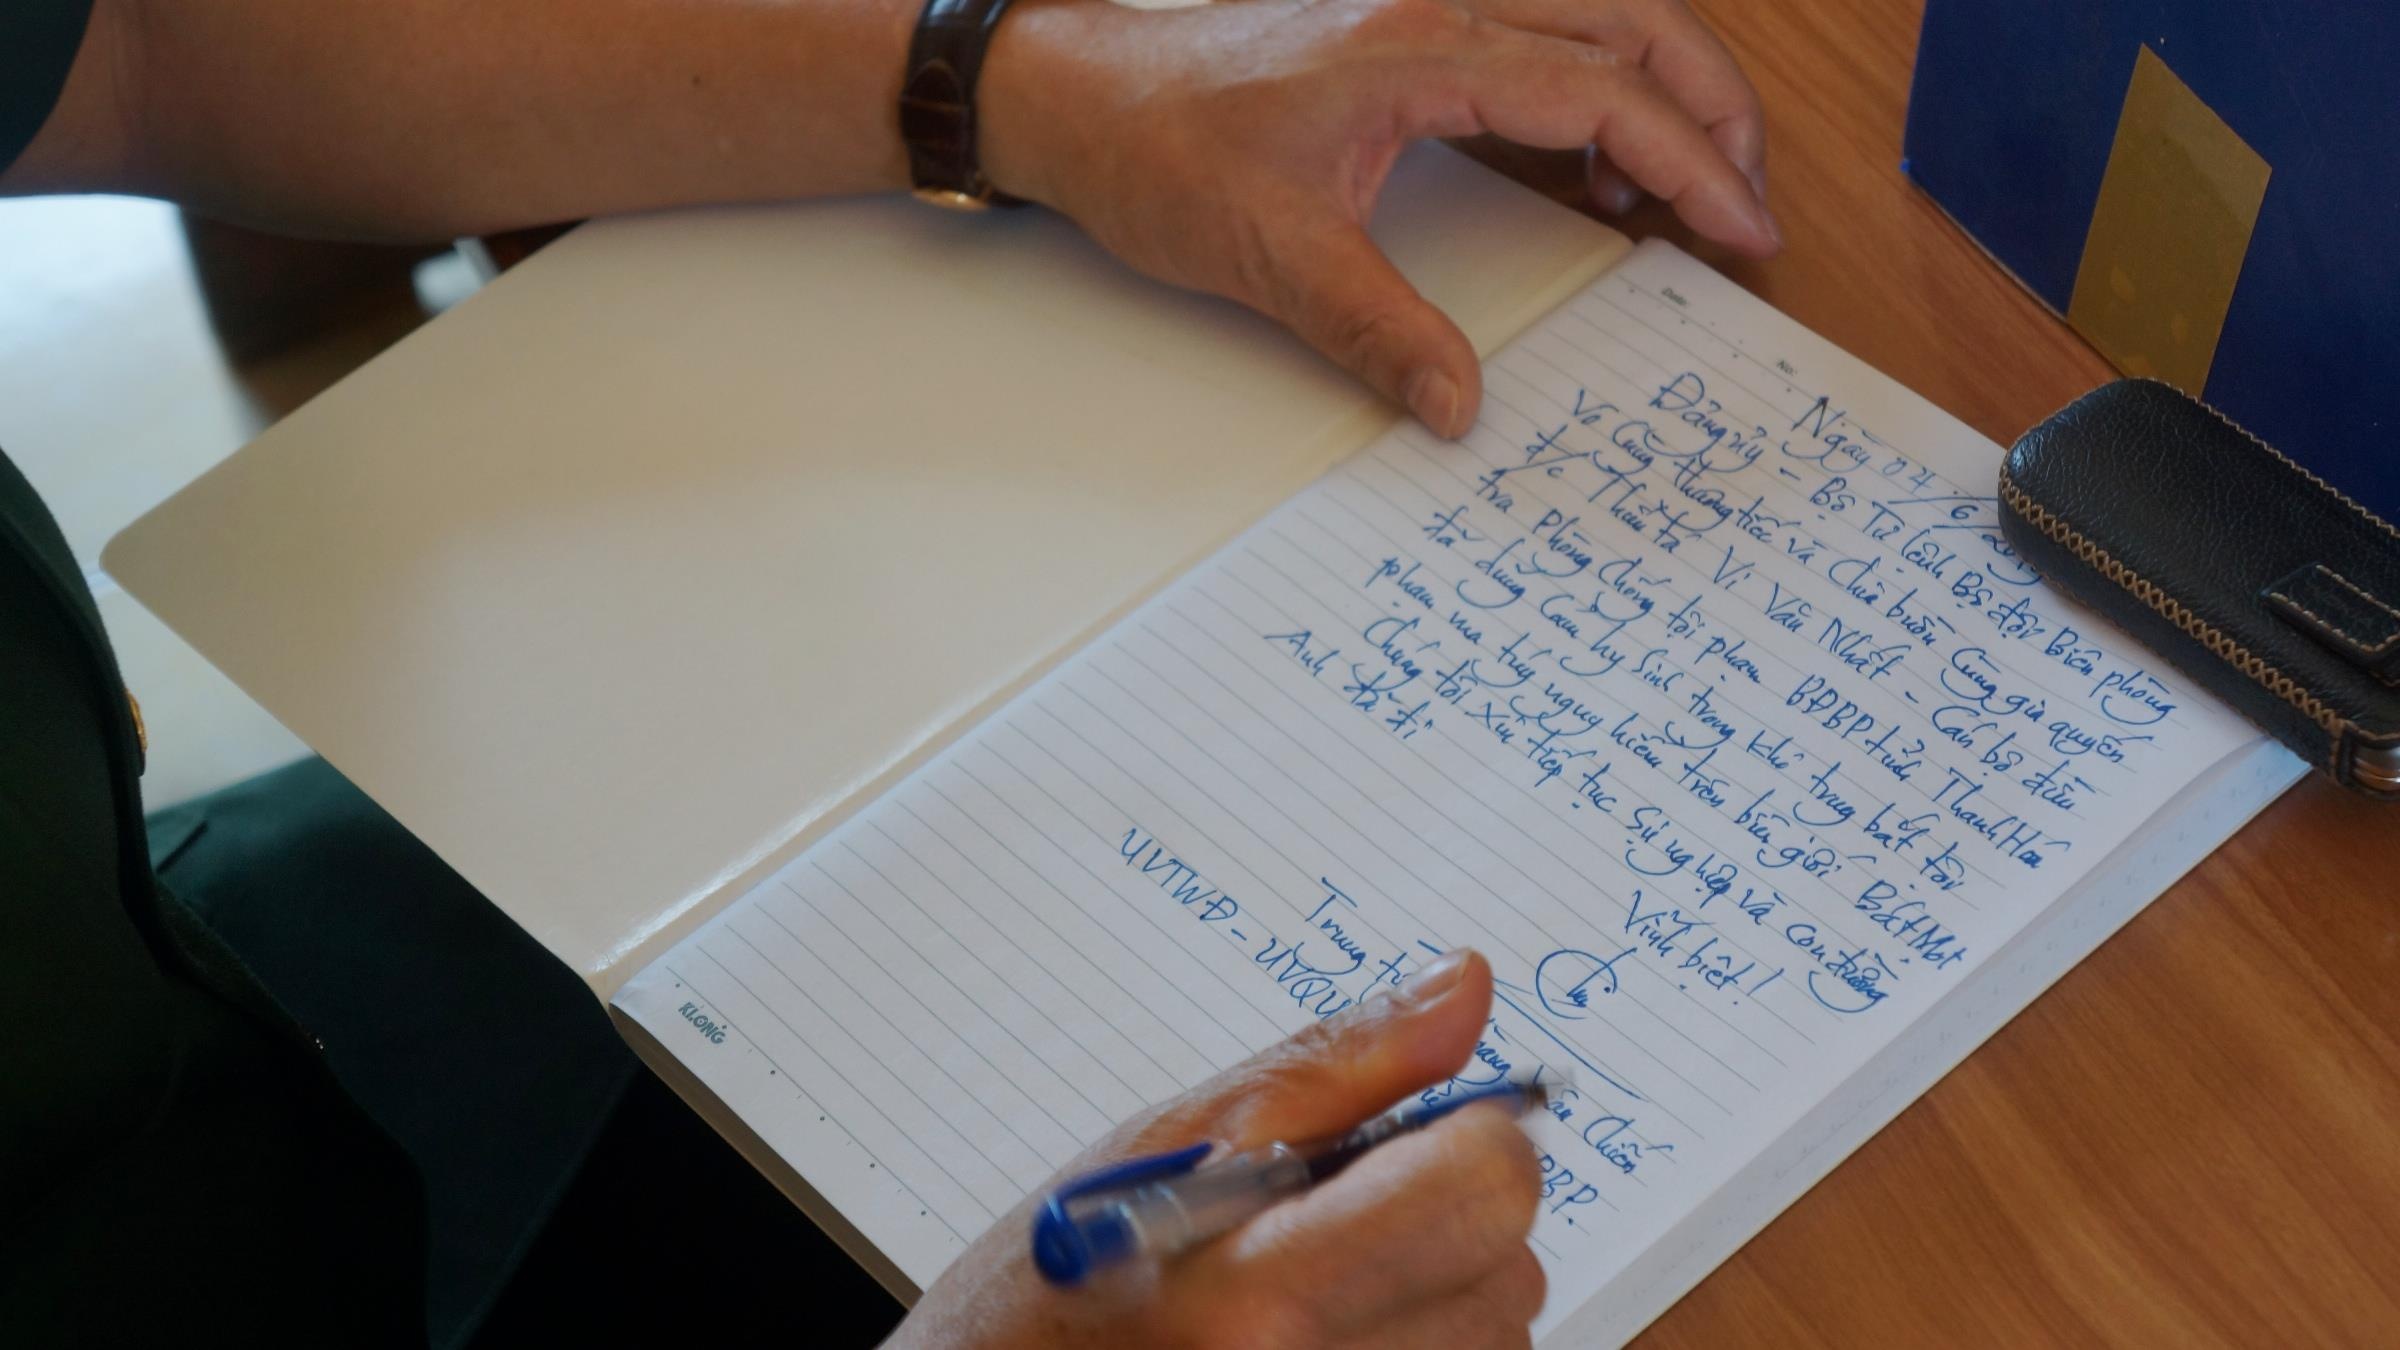 Date:
No:
Ngày 04/6/20
Đảng ủy - Bộ Tư lệnh Bộ đội Biên phòng
Vô Cùng thương tiếc và Chia buồn Cùng gia quyến
đ/c Thiếu tá Vi Văn Nhất - Cán bộ điều
tra Phòng Chống tội phạm BĐBP tỉnh Thanh Hóa
đã dũng Cảm hy Sinh trong khi truy bắt tội
phạm ma túy nguy hiểm trên biên giới Bát Mọt
Chúng tôi xin tiếp tục Sự nghiệp và con đường
Anh đã đi
Vĩnh biệt!
Trung tướng Văn Chiến
UVTWĐ - UVQU BP.
KLONG